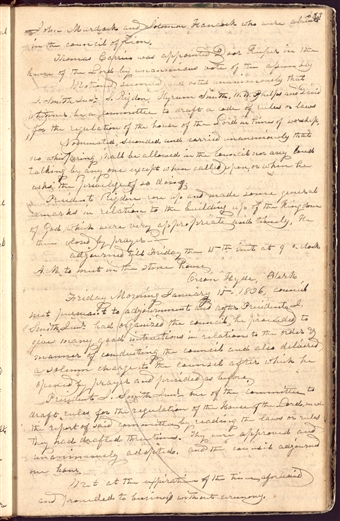 John Murdock and Solomon Hancock who were absent
in the council of Zion,
Thomas Carrico was appointed Door Keeper in the
house of the Lord by unanimous vote of the assembly
Motioned, seconded, and voted unanimously that
J. Smith Junr. S. Rigdon, Hyrum Smith, W. W. Phelps and David
Whitmer be a committee to draft a code of rules or laws
for the regulation of the house of the Lord in times of worship.
Nominated, seconded and carried unanimously that
no whispering shall be allowed in the Council nor any loud
talking by any one except when called upon, or when he
asks the privilege of so doing.
President Rigdon rose up and made some general
remarks in relation to the building up of the Kingdom
of God, which were very appropriate and timely. He
then closed by prayer.
adjourned till Friday the 15th inst at 9 o'clock
A.M. to meet in the Stone House,
Orson Hyde, Clerk
Friday Morning January 15th, 1836, council
met pursuant to adjournment and after President J.
Smith Junr. had organized the council, he proceeded to
give many good instructions in relation to the order &
manner of conducting the council and also delivered
a solemn charge to the council after which he
opened by prayer and presided as before,
President J. Smith Junr. one of the committee to
draft rules for the regulation of the House of the Lord, made
the report of said committee by reading the laws or rules
they had drafted three times. They were approved and
unanimously adopted. and the council adjourned
one hour,
Met at the expiration of the time aforesaid
and proceeded to business without ceremony.